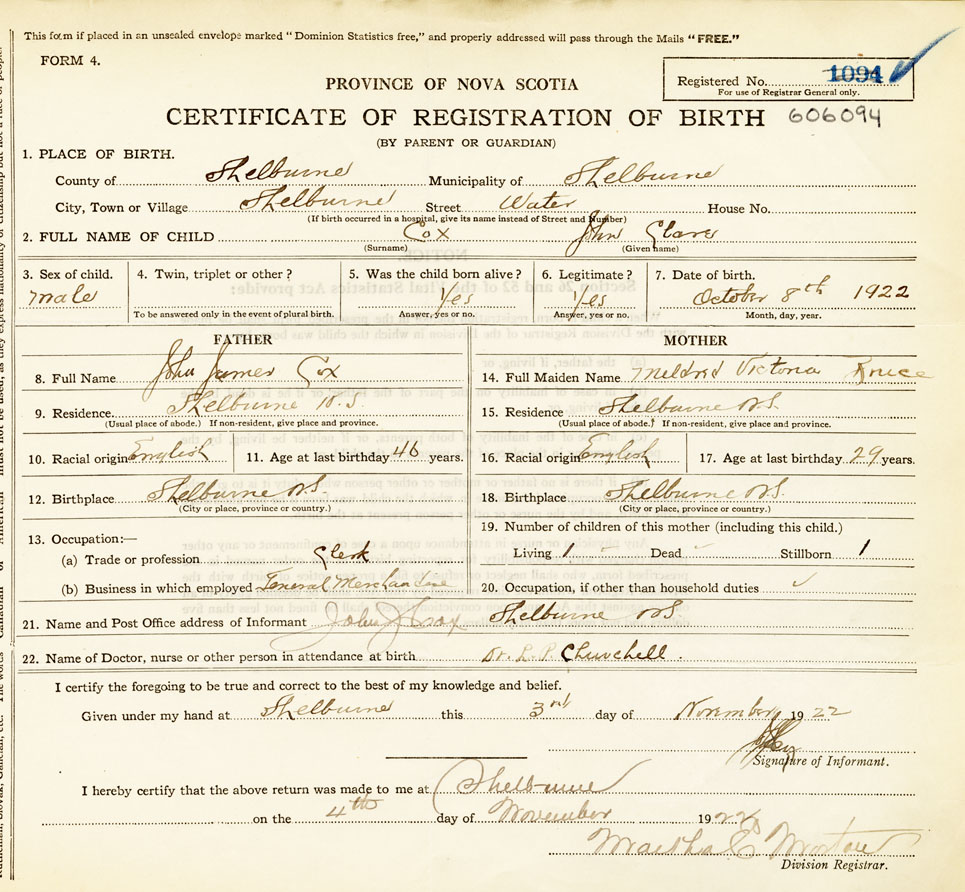 This form if placed in an unsealed envelope marked "Dominion Statistics free," and properly addressed will pass through the Mails "FREE."
FORM 4.
Registered No. 1094
For use of Registrar General only.
PROVINCE OF NOVA SCOTIA
CERTIFICATE OF REGISTRATION OF BIRTH 606094
(BY PARENT OR GUARDIAN)
1. PLACE OF BIRTH.
County of Shelburne Municipality of Shelburne
City, Town or Village Shelburne Street Water House No.
(If birth occurred in a hospital, give its name instead of Street and Number)
2. FULL NAME OF CHILD Cox John
(Surname) (Given name)
3. Sex of child. 4. Twin, triplet or other? 5. Was the child born alive? 6. Legitimate? 7. Date of birth.
male Yes Yes October 8th 1922
To be answered only in the event of plural birth. Answer, yes or no. Answer, yes or no. Month, day, year.
FATHER MOTHER
8. Full Name John James Cox 14. Full Maiden Name Mildred Victoria
9. Residence. Shelburne N.S. 15. Residence Shelburne N.S.
(Usual place of abode.) If non-resident, give place and province. (Usual place of abode.) If non-resident, give place and province.
10. Racial origin English 11. Age at last birthday 40 years. 16. Racial origin English 17. Age at last birthday 29 years.
12. Birthplace Shelburne N.S. 18. Birthplace Shelburne N.S.
(City or place, province or country.) (City or place, province or country.)
13. Occupation:— 19. Number of children of this mother (including this child.)
(a) Trade or profession Clerk Living 1 Dead Stillborn 1
(b) Business in which employed General Merchandise 20. Occupation, if other than household duties
21. Name and Post Office address of Informant John J Cox Shelburne N.S.
22. Name of Doctor, nurse or other person in attendance at birth Dr. L. P. Churchell.
I certify the foregoing to be true and correct to the best of my knowledge and belief.
Given under my hand at Shelburne this 3rd day of November 1922
Signature of Informant.
I hereby certify that the above return was made to me at Shelburne
on the 4th day of November 1922
Martha E Morton
Division Registrar.